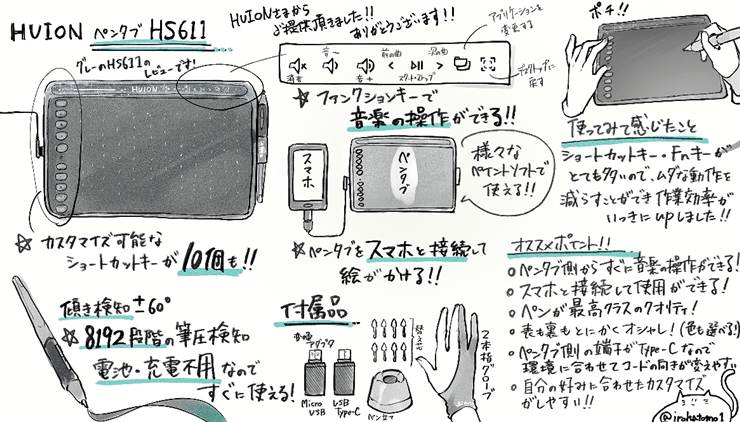 HUION ペンタブ HS611
グレーのHS611の
レビューです!
HUIONさまから
ご提供頂きました!!
ありがとうございます!!
アプリケーションを
変更する
音ー
前の曲
次の曲
消音
音+
スタート・ストップ
デスクトップに
戻す
☆ ファンクションキーで
音楽の操作ができる!!
HUION
スマホ
ペンタブ
様々な
ペイントソフトで
使える!!
☆ペンタブをスマホと接続して
絵がかける!!
☆ カスタマイズ可能な
ショートカットキーが10個も!!
傾き検知±60°
☆ 8192段階の筆圧検知
電池・充電不用なので
すぐに使える!
付属品
変換
アダプタ
Micro
USB
USB
Type-C
替え芯
ペン立て
2本指グローブ
ポチ!!
使ってみて感じたこと
ショートカットキー・Fnキーが
とても多いので、ムダな動作を
減らすことができ作業効率が
いっきにupしました!!
オススメポイント!!
○ペンタブ側からすぐに音楽の操作ができる!
○スマホと接続して使用ができる!
○ペンが最高クラスのクオリティ!
○表も裏もとにかくオシャレ!(色も選べる!)
○ペンタブ側の端子がType-Cなので
環境に合わせてコードの向きが変えやすい
○自分の好みに合わせたカスタマイズ
がしやすい!!
@irohatomo1